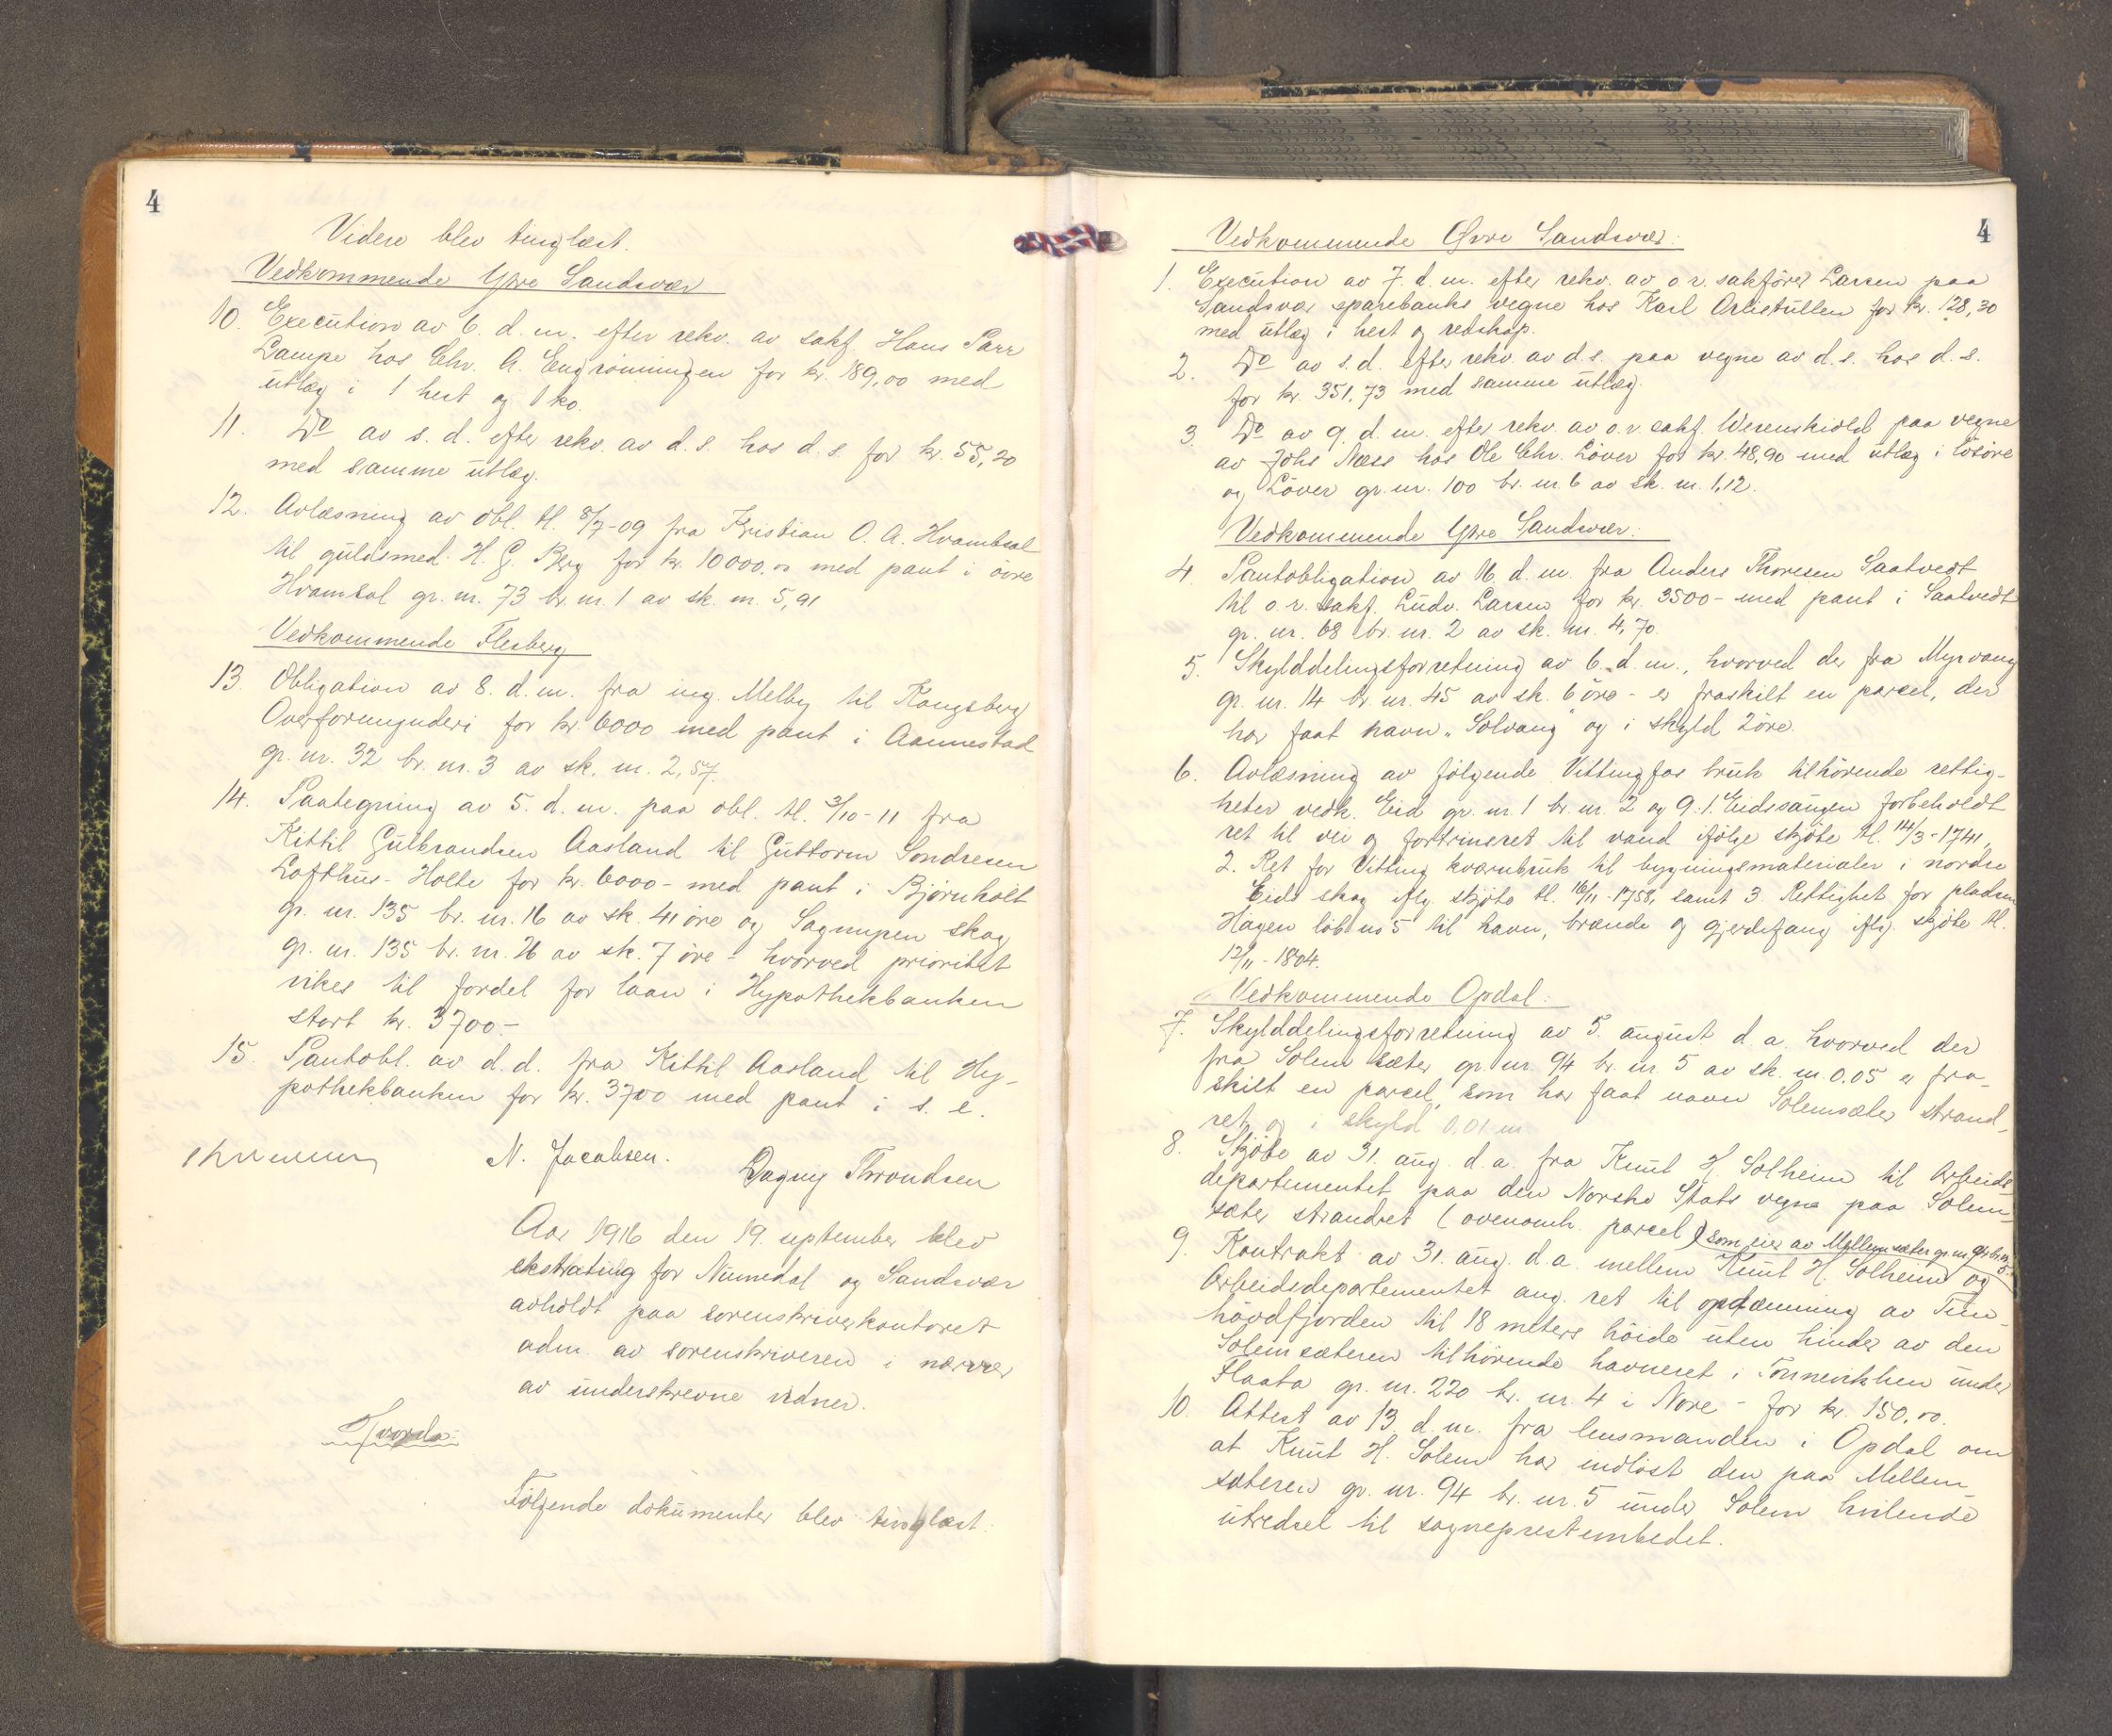 4
Videre blev tinglæst.
Vedkommende Ytre Sandsvær
10. Execution av 6. d. m. efter rekv. av sakf. Hans Parr
Lampe hos Chr. A. Engrønningen for kr. 189,00 med
utlæg i 1 hest og 1 ko.
11. Do av s. d. efter rekv. av d. s. hos d. s. for kr. 55,20
med samme utlæg.
12. Avlæsning av obl. tl. 8/7-09 fra Kristian O. A. Hvambsal
til guldsmed H. G. Berg for kr. 10000,00 med pant i övre
Hvamsal gr. nr. 73 br. nr. 1 av sk. m. 5,91
Vedkommende Flesberg
13. Obligation av 8. d. m. fra ing. Melby til Kongsberg
Overformynderi for kr. 6000 med pant i Aannestad
gr. nr. 32 br. nr. 3 av sk. m. 2,57.
14. Paategning av 5. d. m. paa obl. tl. 3/10-11 fra
Kittil Gulbrandsen Aasland til Guttorm Sondresen
Lofthus-Holte for kr. 6000- med pant i Bjørnholt
gr. nr. 135 br. nr. 16 av sk. 41 öre og Sagmyren skog
gr. nr. 135 br. nr. 26 av sk. 7 öre - hvorved prioritet
vikes til fordel for laan i Hypothekbanken
stort kr. 3700.-
15. Pantobl. av d. d. fra Kittil Aasland til Hy-
pothekbanken for kr. 3700 med pant i s. e.
N. Jacobsen. Dagny Throndsen
Aar 1916 den 19. september blev
ekstrating for Numedal og Sandsvær
avholdt paa sorenskriverkontoret
adm. av sorenskriveren i nærvær
av underskrevne vidner.
Hvorda:
Følgende dokumenter blev tinglæst:
4
Vedkommende Øvre Sandsvær:
1. Execution av 7. d. m. efter rekv. av o. r. sakförer Larsen paa
Sandsvær sparebanks vegne hos Karl Orlistullen for kr. 128,30
med utlæg i hest og redskap.
2. Do av s. d. efter rekv. av d. s. paa vegne av d. s. hos d. s.
for kr. 351,73 med samme utlæg.
3. Do av 9. d. m. efter rekv. av o. r. sakf. Werenskiold paa vegne
av Johs Næss hos Ole Chr. Löver for kr. 48,90 med utlæg i lösöre
og Löver gr. nr. 100 br. nr. 6 av sk. m. 1,12.
Vedkommende Ytre Sandsvær:
4. Pantobligation av 16. d. m. fra Anders Thoresen Saatvedt
til o. r. sakf. Ludv. Larsen for kr. 3500- med pant i Saatvedt
gr. nr. 68 br. nr. 2 av sk. m. 4,70.
5. Skylddelingsforretning av 6. d. m., hvorved der fra Myrvang
gr. nr. 14 br. nr. 45 av sk. 6 öre - er fraskilt en parcel, der
har faat navn "Solvang" og i skyld 2 öre.
6. Avlæsning av følgende Vittingfos bruk tilhörende rettig-
heter vedk. Eid gr. nr. 1 br. nr. 2 og 9. 1. Eidssaugen forbeholdt
ret til vei og fortrinsret til vand ifölge skjöte tl. 14/3-1741,
2. Ret for Vitting kværnbruk til bygningsmaterialer i nordre
Eids skog iflg. skjöte tl. 16/11-1758, samt 3. Rettighet for pladsen
Hagen löb no 5 til havn, brænde og gjerdefang iflg. skjöte tl.
12/11-1804.
Vedkommende Opdal:
7. Skylddelingsforretning av 5. august d. a. hvorved der
fra Solem sæter gr. nr. 94 br. nr. 5 av sk. m. 0.05 er fra-
skilt en parcel, som har faat navn Solemsæter strand-
ret og i skyld 0,01 m
8. Skjöte av 31. aug. d. a. fra Knut H. Solheim til Arbeids-
departementet paa den Norske Stats vegne paa Solem-
sæter strandret (ovenomh. parcel)
9. Kontrakt av 31. aug. d. a. mellem Knut H. Solheim som eier av Mellem sæter gr. nr. 94 br. nr. 5 og
Arbeidsdepartementet ang. ret til opdæmning av Tun-
hövdfjorden til 18 meters höide uten hinder av den
Solemsæteren tilhörende havneret i Tonnevikhen under
Flaata gr. nr. 220 br. nr. 4 i Nore - for kr. 150,00.
10. Attest av 13. d. m. fra lensmanden i Opdal om
at Knut H. Solem har indlöst den paa Mellem-
sæteren gr. nr. 94 br. nr. 5 under Solem hvilende
utredsel til sogneprestembedet.